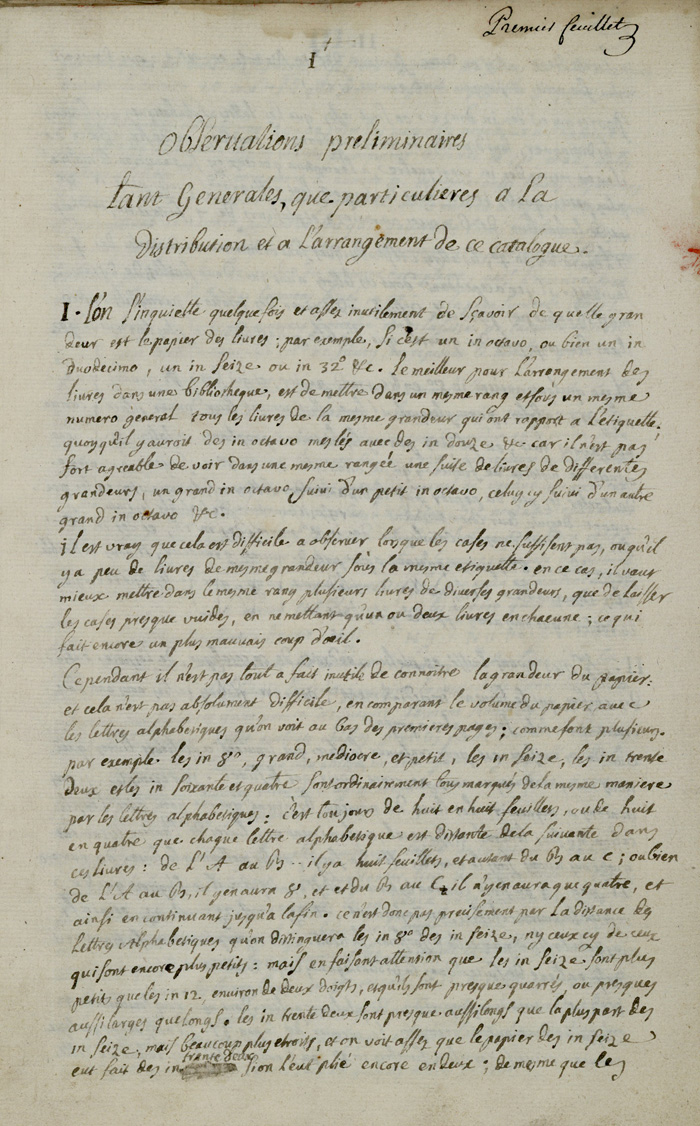 Premier feuillet
I
Observations preliminaires
tant Generales, que particulieres a La
Distribution et a L'arrangement de ce catalogue.
I. L'on s'inquiette quelque fois et assez inutilement de sçavoir de quelle gran
deur est le papier des livres ; par exemple, si c'est un in octavo, ou bien un in
Duodecimo, un in seize ou in 32º &c. Le meilleur pour L'arrangement des
livres dans une bibliotheque, est de mettre dans un mesme rang et sous un mesme
numero general tous les livres de la mesme grandeur qui ont rapport a L'etiquette,
quoyqu'il y auroit des in octavo meslés avec des in douze &c car il n'est pas
fort agreable de voir dans une mesme rangée une suite de livres de differentes
grandeurs, un grand in octavo, suivi d'un petit in octavo, celuy cy suivi d'un autre
grand in octavo &c.
il est vray que cela est difficile a observer lorsque les cases ne suffisent pas, ou qu'il
y a peu de livres de mesme grandeur sous la mesme etiquette. en ce cas, il vaut
mieux mettre dans le mesme rang plusieurs livres de diverses grandeurs, que de laisser
les cases presque vuides, en ne mettant qu'un ou deux livres en chacune ; ce qui
fait encore un plus mauvais coup d'oeil.
Cependant il n'est pas tout a fait inutile de connoitre la grandeur du papier :
et cela n'est pas absolument difficile, en comparant le volume du papier avec
les lettres alphabetiques qu'on voit au bas des premieres pages ; comme font plusieurs.
par exemple. les in 8º, grand, mediocre, et petit, les in seize, les in trente
deux et les in soixante et quatre sont ordinairement tous marqués de la mesme maniere
par les lettres alphabetiques : c'est toujours de huit en huit feuillets, ou de huit
en quatre que chaque lettre alphabetique est distante de la suivante dans
ces livres : de L'A au B -- il y a huit feuillets, et autant du B au C ; ou bien
de L'A au B, il y en aura 8, et et du B au C, il n'y en aura que quatre, et
ainsi en continuant jusqu'a la fin. ce n'est donc pas precisement par la distance des
Lettres Alphabetiques qu'on distinguera les in 8º des in seize, ny ceux cy de ceux
qui sont encore plus petits : mais en faisant attention que les in seize sont plus
petits que les in 12, environ de deux doigts, et qu'ils sont presque quarrés, ou presques
aussi larges que longs. les in trente deux sont presque aussi longs que la plus part des
in seize, mais beaucoup plus etroits, et on voit assez que le papier des in seize
eut fait des in trente deux si on l'eut plié encore en deux ; de mesme que les